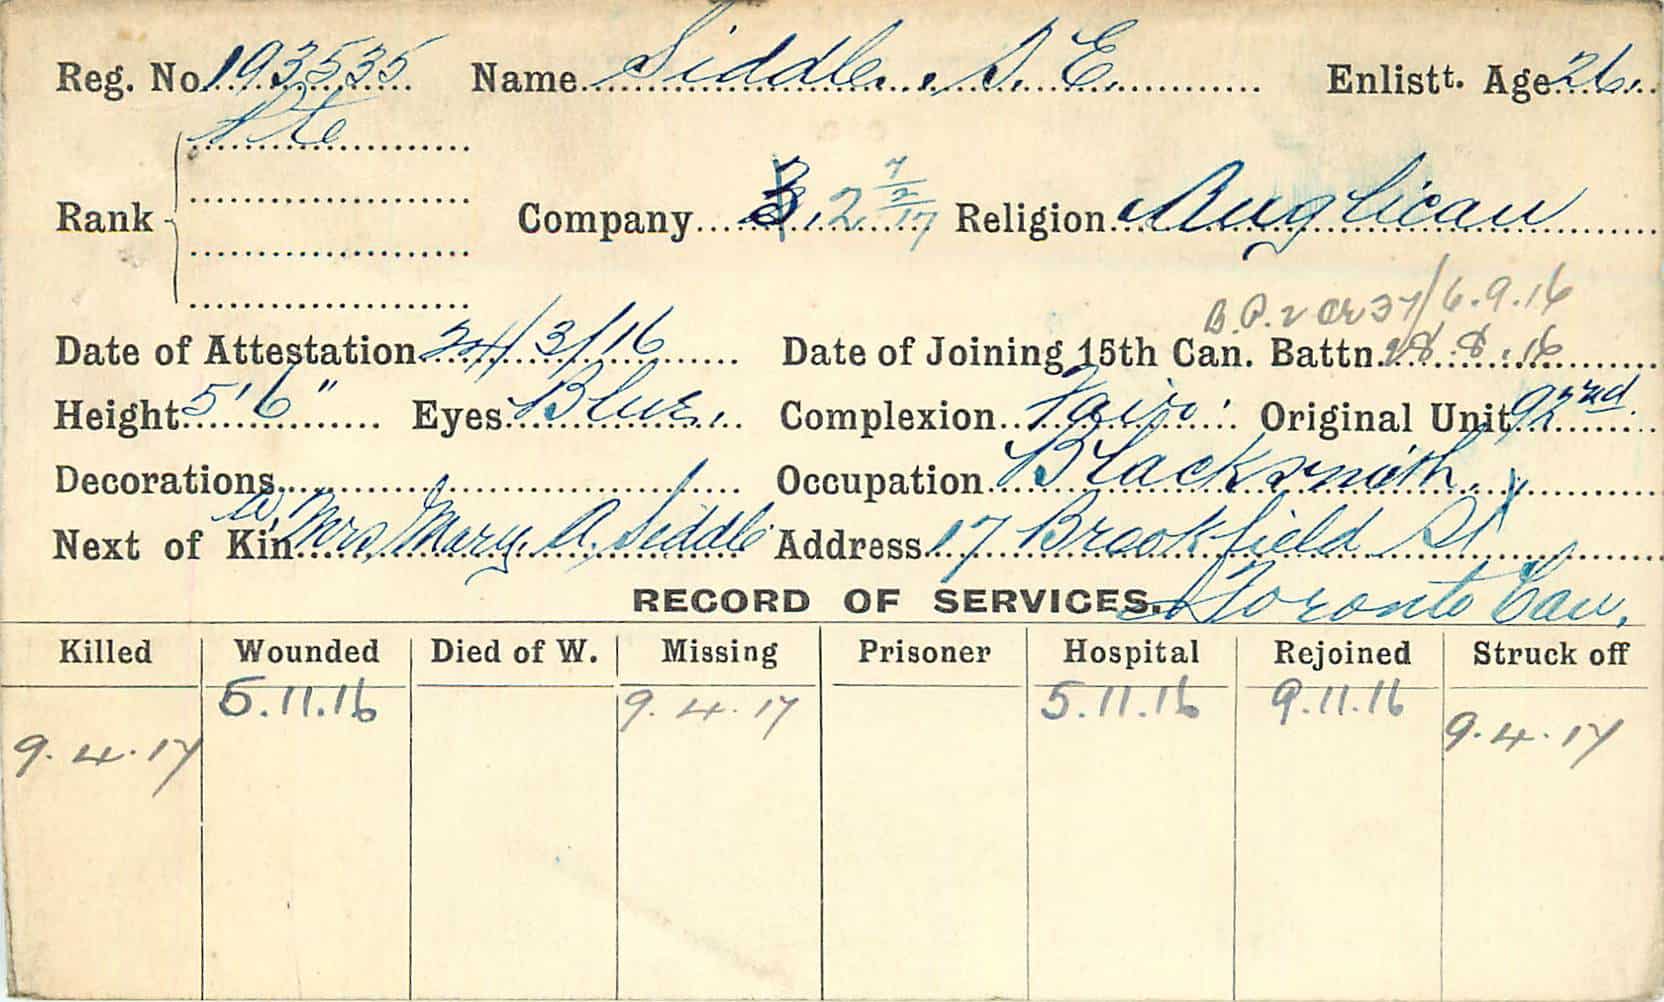 Reg. No. 193535 Name Siddle, S. E. Enlistt. Age 26.
Pte
Rank Company 3, 2 7/2/17 Religion Anglican
B.P. 2 Or 37/6.9.16
Date of Attestation 24/3/16 Date of Joining 15th Can. Battn. 28.8.16
Height 5' 6" Eyes Blue. Complexion Fair. Original Unit 92nd.
Decorations Occupation Blacksmith.
W.
Next of Kin Mrs, Mary. A. Siddle Address 17 Brookfield St
RECORD OF SERVICES. Toronto Can.
Killed Wounded Died of W. Missing Prisoner Hospital Rejoined Struck off
5.11.16 9.4.17 5.11.16 9.11.16
9.4.17 9.4.17